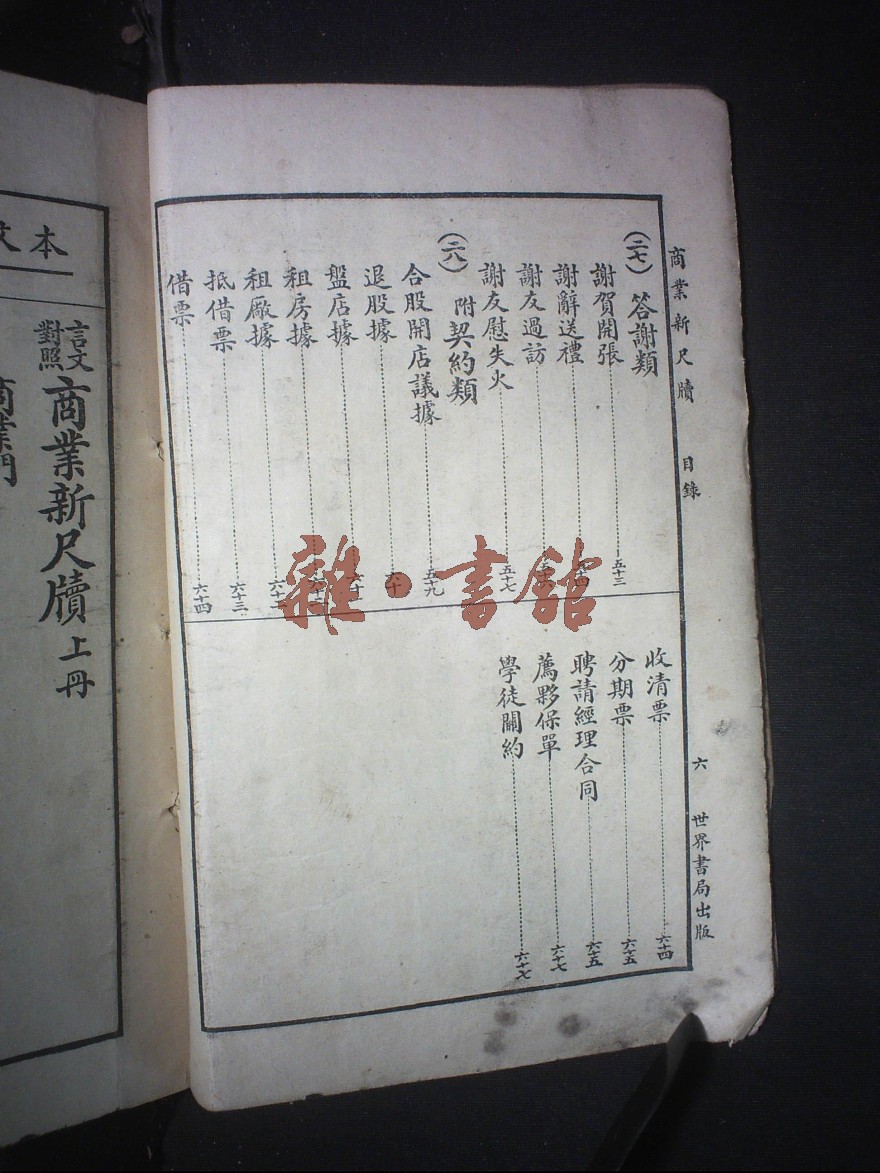 商業新尺牘 目錄 六 世界書局出版
(二七) 答謝類
謝賀開張 五十三
謝辭送禮
謝友過訪
謝友慰失火 五十七
(二八) 附契約類
合股開店議據 五十九
退股據 六十
盤店據 六十一
租房據
租廠據 六十二
抵借票 六十三
借票 六十四
收清票 六十四
分期票 六十五
聘請經理合同 六十五
薦夥保單 六十七
學徒關約 六十七
本文
言文對照 商業新尺牘 上冊
商業門
雜·書館